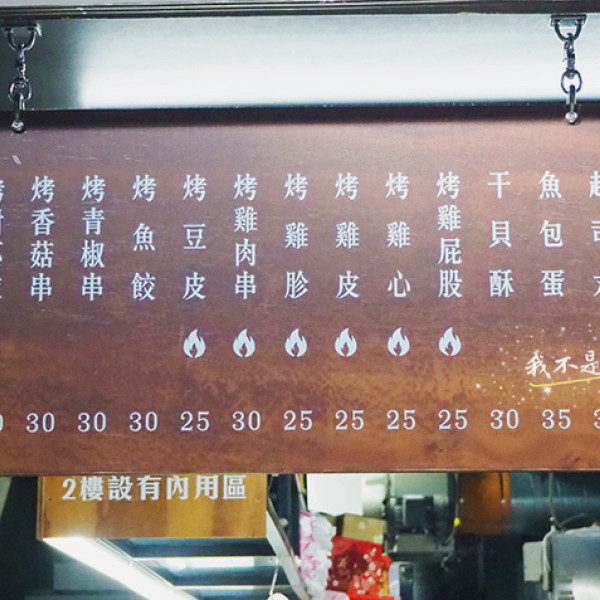 起司
魚包蛋
干貝酥
烤雞屁股
烤雞心
烤雞皮
烤雞胗
烤雞肉串
烤豆皮
烤魚餃
烤青椒串
烤香菇串
我不是
30 30 30 25 30 25 25 25 25 30 35
2樓設有內用區